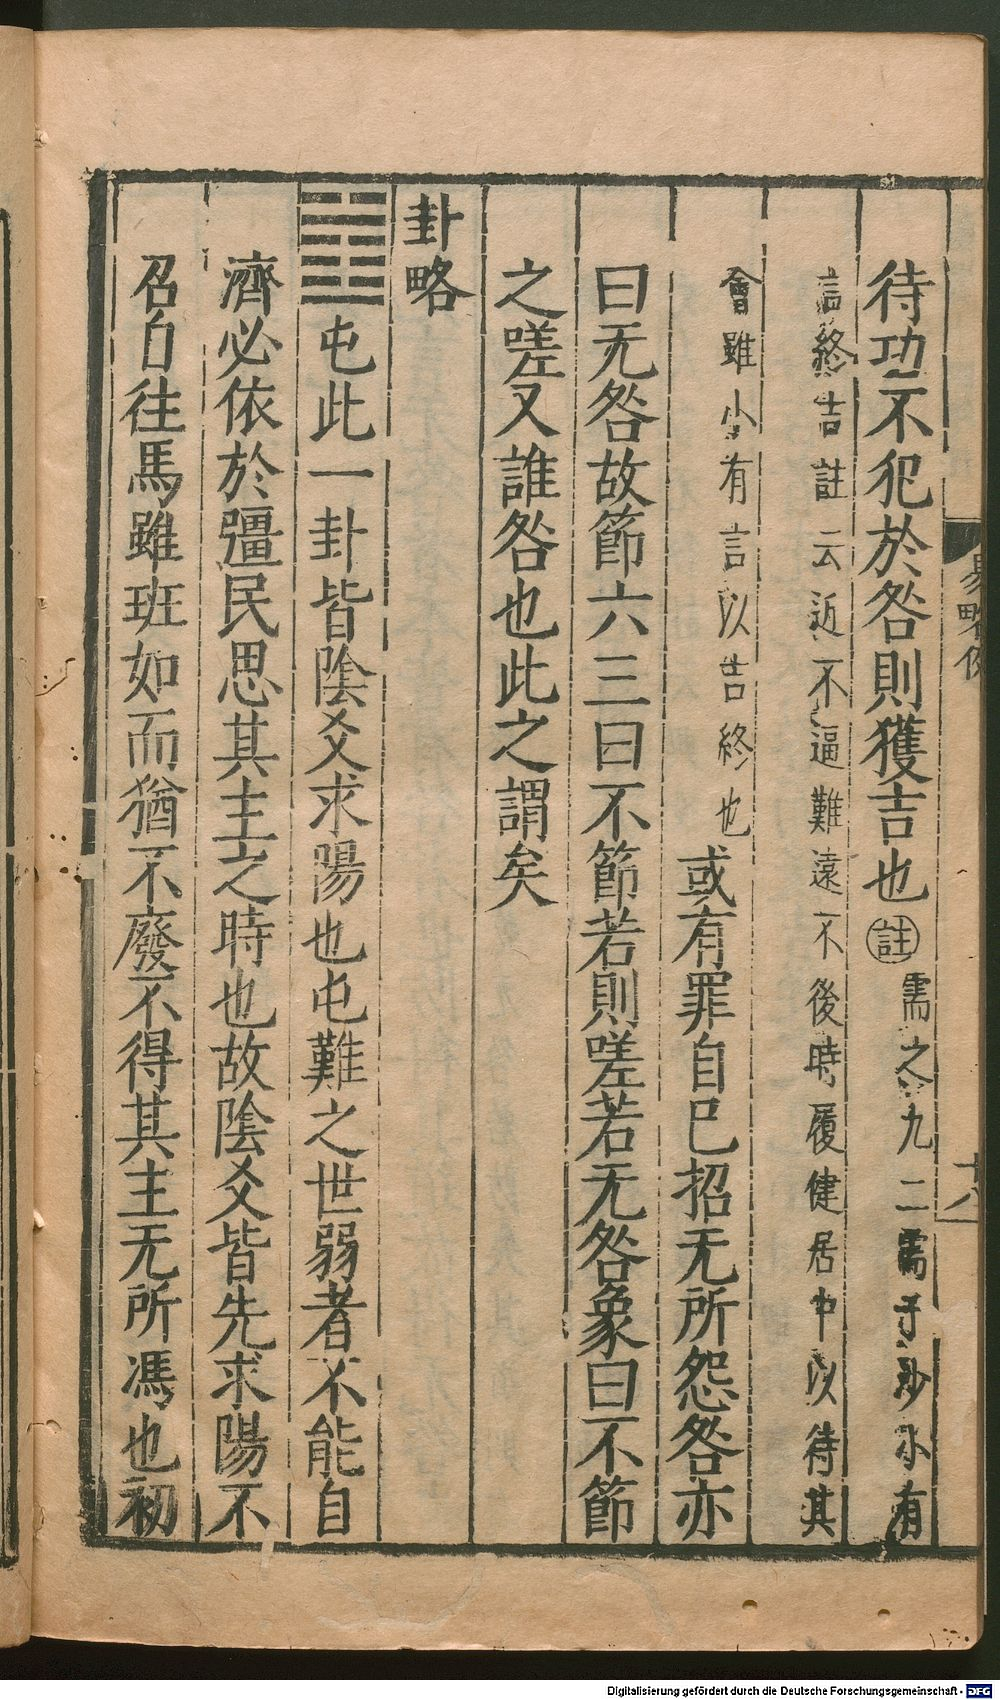 易略例
十八
待功不犯於咎則獲吉也註需之九二需于沙小有
言終吉註云近不逼難遠不後時履健居中以待其
會雖小有言以吉終也或有罪自已招无所怨咎亦
曰无咎故節六三曰不節若則嗟若无咎象曰不節
之嗟又誰咎也此之謂矣
卦略
䷂屯此一卦皆陰爻求陽也屯難之世弱者不能自
濟必依於彊民思其主之時也故陰爻皆先求陽不
召自往馬雖班如而猶不廢不得其主无所馮也初
Digitalisierung gefördert durch die Deutsche Forschungsgemeinschaft - DFG